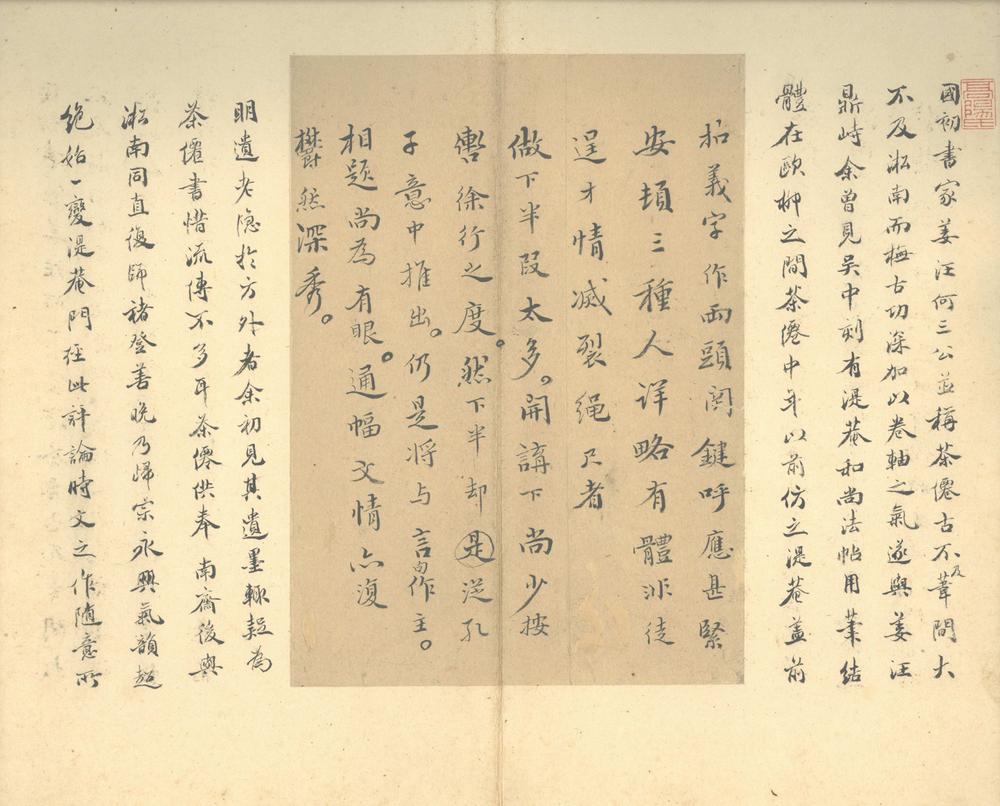 國初書家姜汪何三公並稱茶僊古不及葦間大
不及淞南而橅古切深加以卷軸之氣遂與姜汪
鼎峙余曾見吳中刻有湜菴和尚法帖用筆結
體在歐柳之間茶僊中年以前仿之湜菴蓋前
拈義字作兩頭關鍵呼應甚緊
安頓三種人详略有體非徒
逞才情滅裂绳尺者
做下半段太多。開講下尚少按
轡徐行之度。然下半却是從孔
子意中推出。仍是將与言句作主。
相題尚為有眼。通幅文情亦復
鬱然深秀。
明遺老隐於方外者余初見其遺墨輒疑為
茶僊書惜流傳不多耳茶僊供奉 南齋後與
淞南同直復師褚登善晚乃歸宗永興氣韻超
絶始一變湜菴門徑此評論時文之作随意所